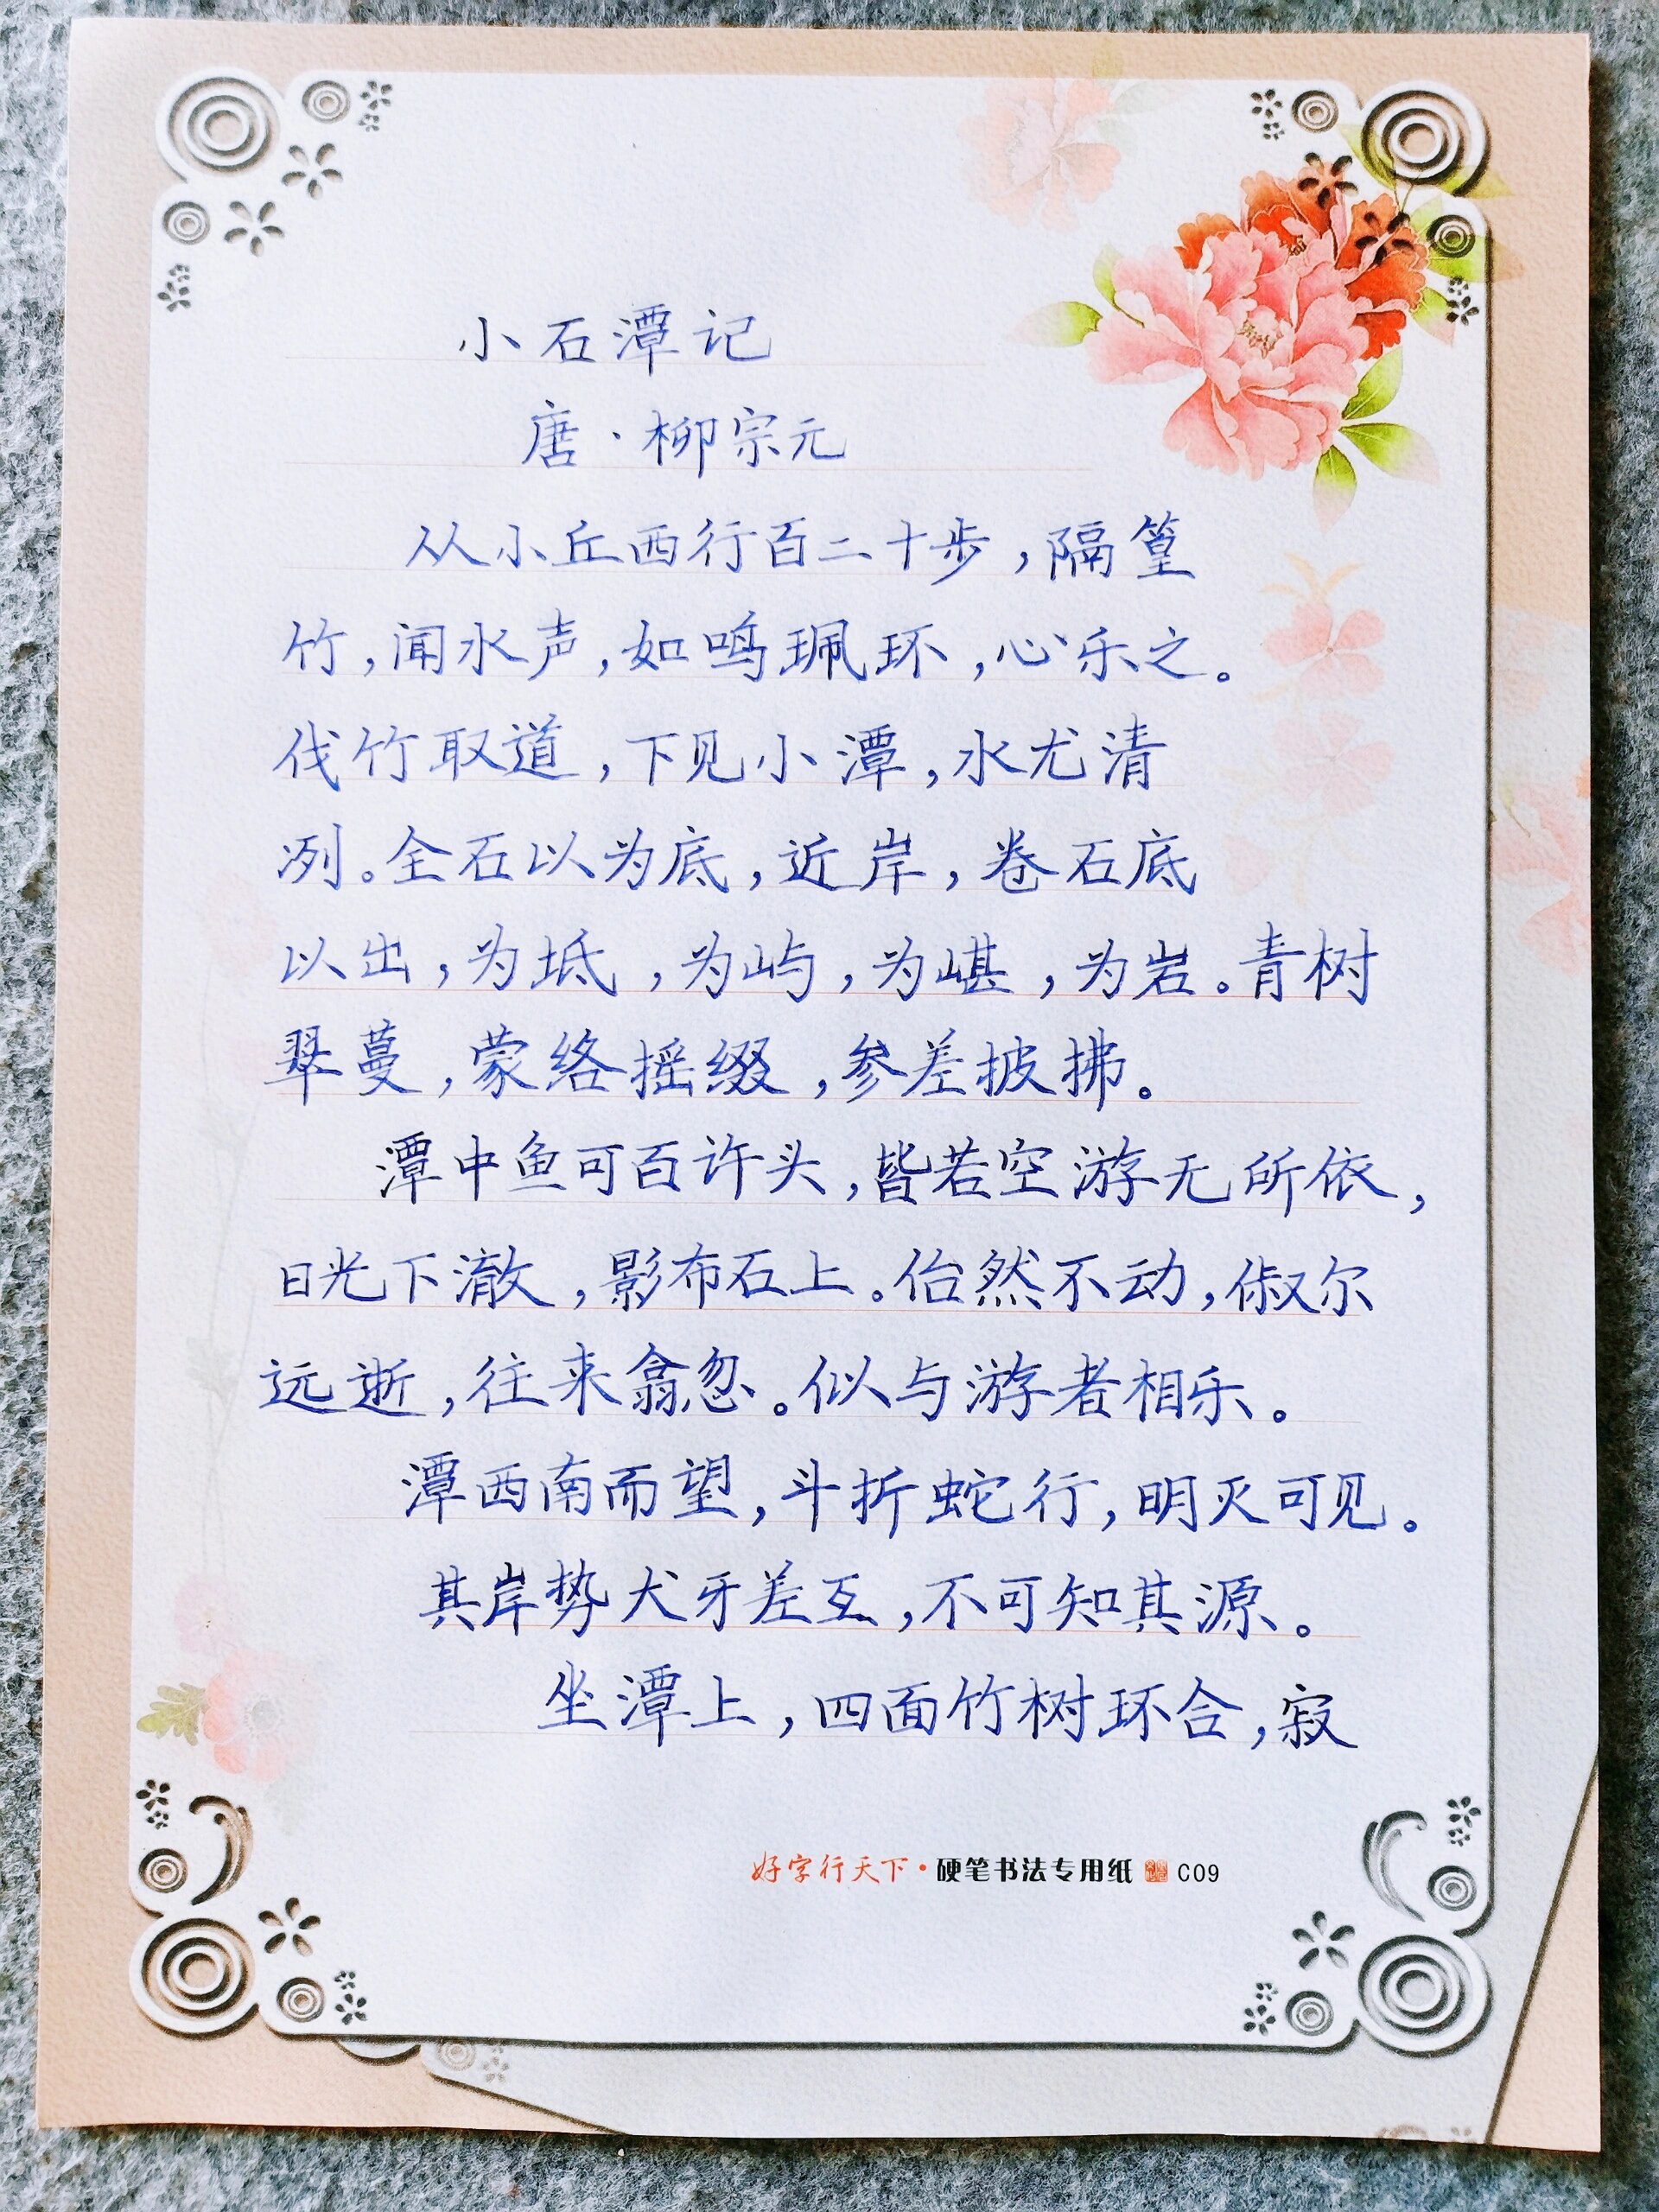 小石潭记
唐·柳宗元
从小丘西行百二十步,隔篁
竹,闻水声,如鸣珮环,心乐之。
伐竹取道,下见小潭,水尤清
冽。全石以为底,近岸,卷石底
以出,为坻,为屿,为嵁,为岩。青树
翠蔓,蒙络摇缀,参差披拂。
潭中鱼可百许头,皆若空游无所依,
日光下澈,影布石上。佁然不动,俶尔
远逝,往来翕忽。似与游者相乐。
潭西南而望,斗折蛇行,明灭可见。
其岸势犬牙差互,不可知其源。
坐潭上,四面竹树环合,寂
好字行天下·硬笔书法专用纸 C09